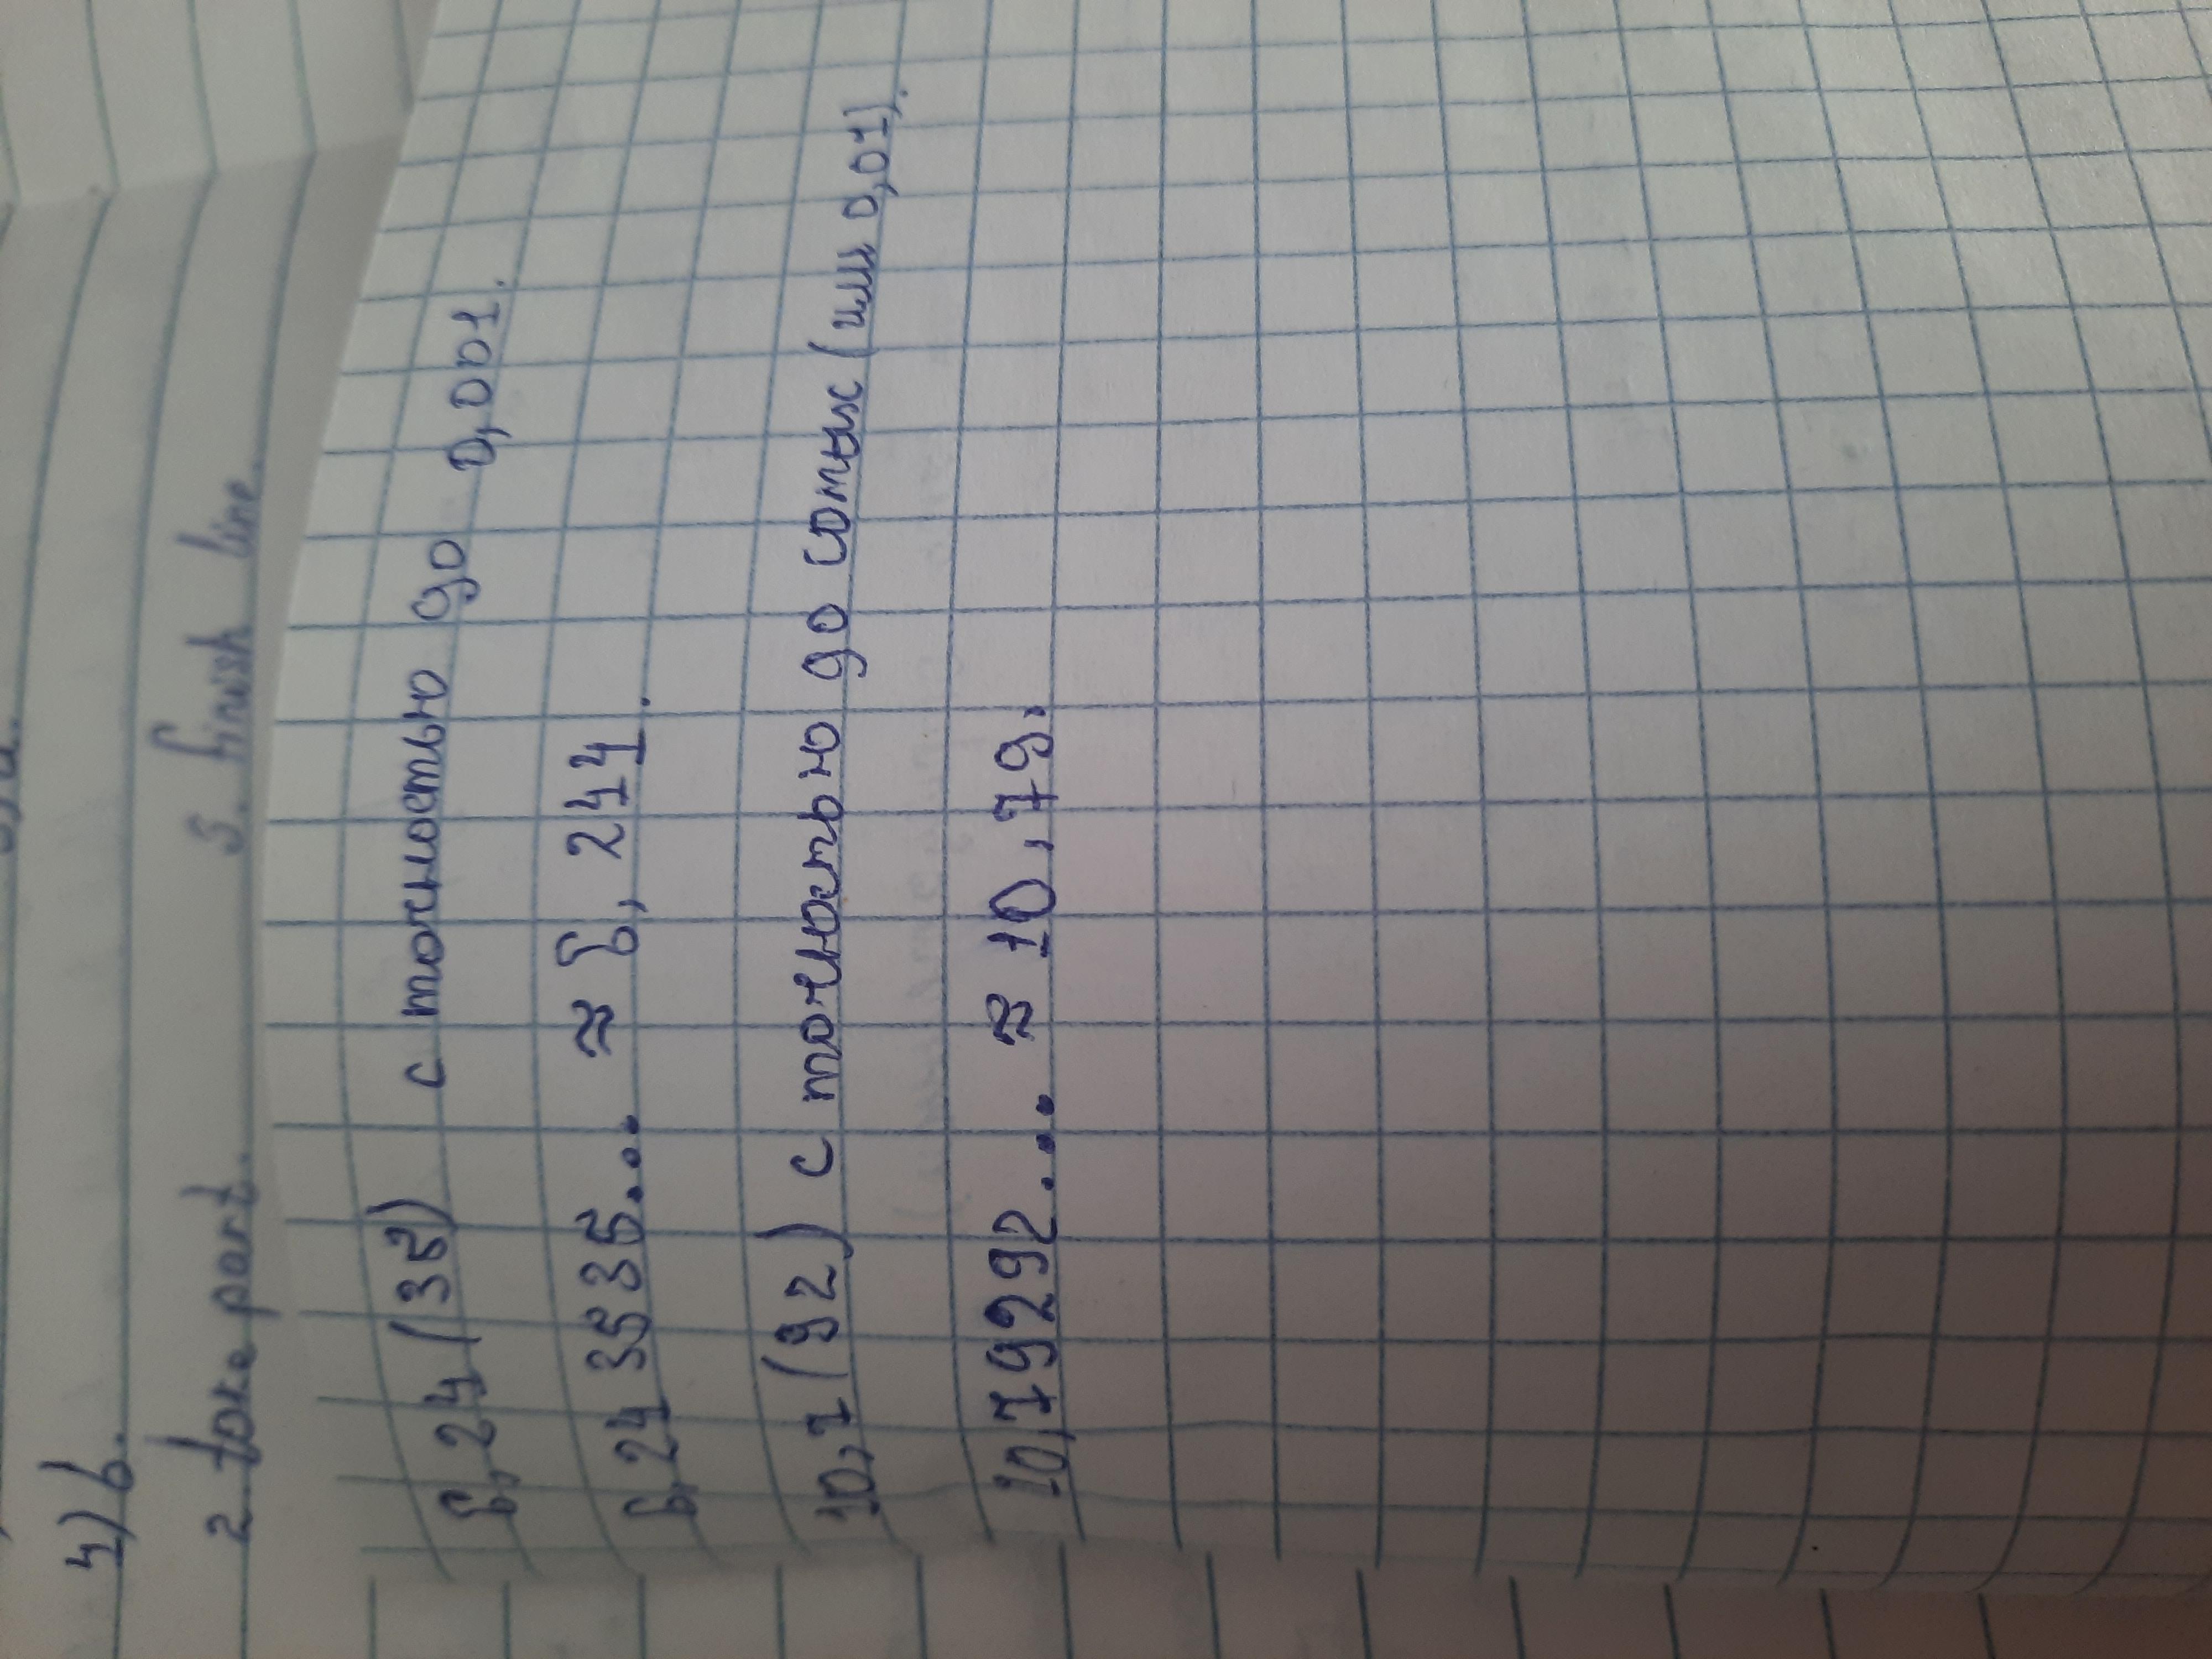 4) b.
2. take part. 5. finish line.
6,24(35) с точностью до 0,001.
6,243535... ≈ 6,244.
10,1(92) с точностью до сотых (или 0,01).
10,19292... ≈ 10,19.